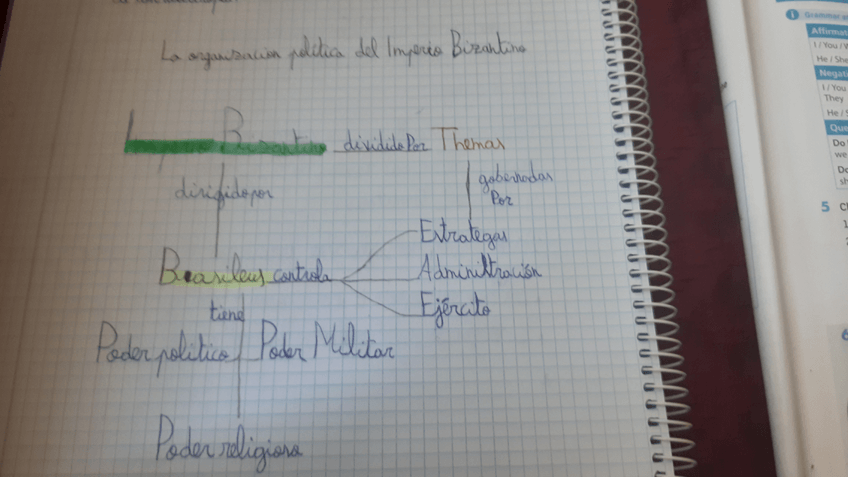 La organización política del Imperio Bizantino
Imperio Bizantino dividido Por Themas
dirigido por
gobernadas
Por
Estrategas
Basileus controla
Administración
Ejército
tiene
Poder político
Poder Militar
Poder religioso
Grammar
Affirmat
I / You / W
He / She
Negati
I / You
They
He / S
Que
Do
we
Do
sh
5
1
6